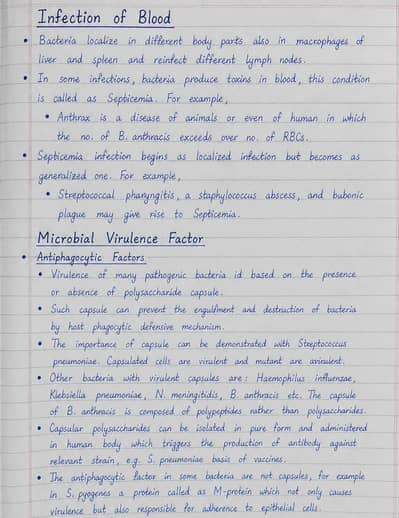 Infection of Blood
• Bacteria localize in different body parts also in macrophages of
liver and spleen and reinfect different lymph nodes.
• In some infections, bacteria produce toxins in blood, this condition
is called as Septicemia. For example,
• Anthrax is a disease of animals or even of human in which
the no. of B. anthracis exceeds over no. of RBCs.
• Septicemia infection begins as localized infection but becomes as
generalized one. For example,
• Streptococcal pharyngitis, a staphylococcus abscess, and bubonic
plague may give rise to Septicemia.
Microbial Virulence Factor
• Antiphagocytic Factors
• Virulence of many pathogenic bacteria id based on the presence
or absence of polysaccharide capsule.
• Such capsule can prevent the engulfment and destruction of bacteria
by host phagocytic defensive mechanism.
• The importance of capsule can be demonstrated with Streptococcus
pneumoniae. Capsulated cells are virulent and mutant are avirulent.
• Other bacteria with virulent capsules are: Haemophilus influenzae,
Klebsiella pneumoniae, N. meningitidis, B. anthracis etc. The capsule
of B. anthracis is composed of polypeptides rather than polysaccharides.
• Capsular polysaccharides can be isolated in pure form and administered
in human body which triggers the production of antibody against
relevant strain, e.g. S. pneumoniae basis of vaccines.
• The antiphagocytic factor in some bacteria are not capsules, for example
in S. pyogenes a protein called as M-protein which not only causes
virulence but also responsible for adherence to epithelial cells.